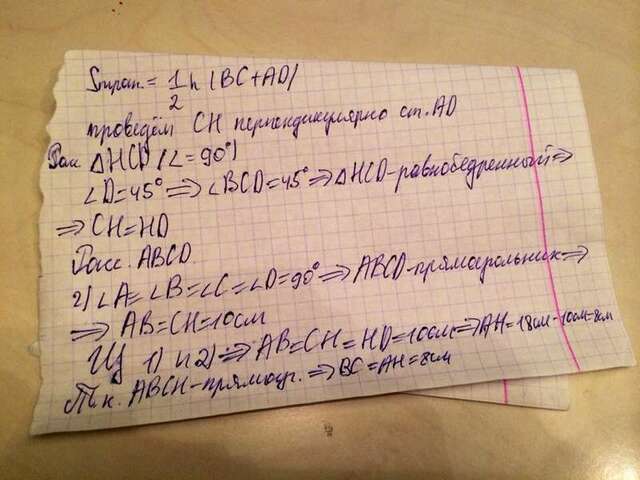 Sтрап. = 1/2 h (BC+AD)
проведём CH перпендикулярно ст. AD
Рас. △HCD (∠=90°)
∠D=45° ⇒ ∠BCD=45° ⇒ △HCD-равнобедренный ⇒
⇒ CH=HD
Расс. ABCD
2) ∠A=∠B=∠C=∠D=90° ⇒ ABCD-прямоугольник ⇒
⇒ AB=CH=10см
Из 1) и 2) ⇒ AB=CH=HD=10см ⇒ AH=18см-10см=8см
Т.к. ABCH-прямоуг. ⇒ BC=AH=8см